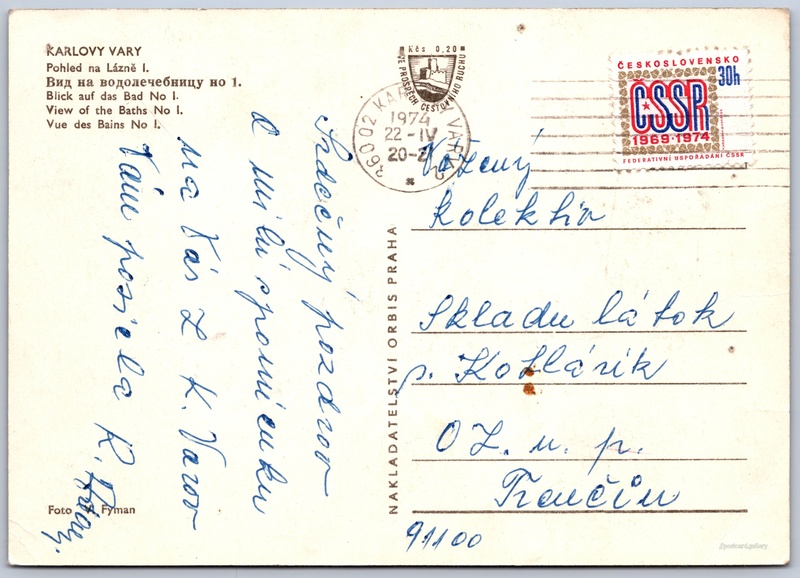 KARLOVY VARY
Pohled na Lázně I.
Вид на водолечебницу но 1.
Blick auf das Bad No I.
View of the Baths No I.
Vue des Bains No I.
Kčs 0,20
VE PROSPĚCH CESTOVNÍHO RUCHU
36002 KARLOVY VARY 2
1974
22-IV
20-2
ČESKOSLOVENSKO
30h
ČSSR
1969-1974
FEDERATIVNÍ USPOŘÁDÁNÍ ČSSR
Srdečný pozdrav
a milú spomienku
na Vás z K. Varov
Vám posiela R.
Vážený
Kolektiv
Skladu látok
p. Kotlárik
OZ. n. p.
Trenčín
91100
NAKLADATELSTVÍ ORBIS PRAHA
Foto Fyman